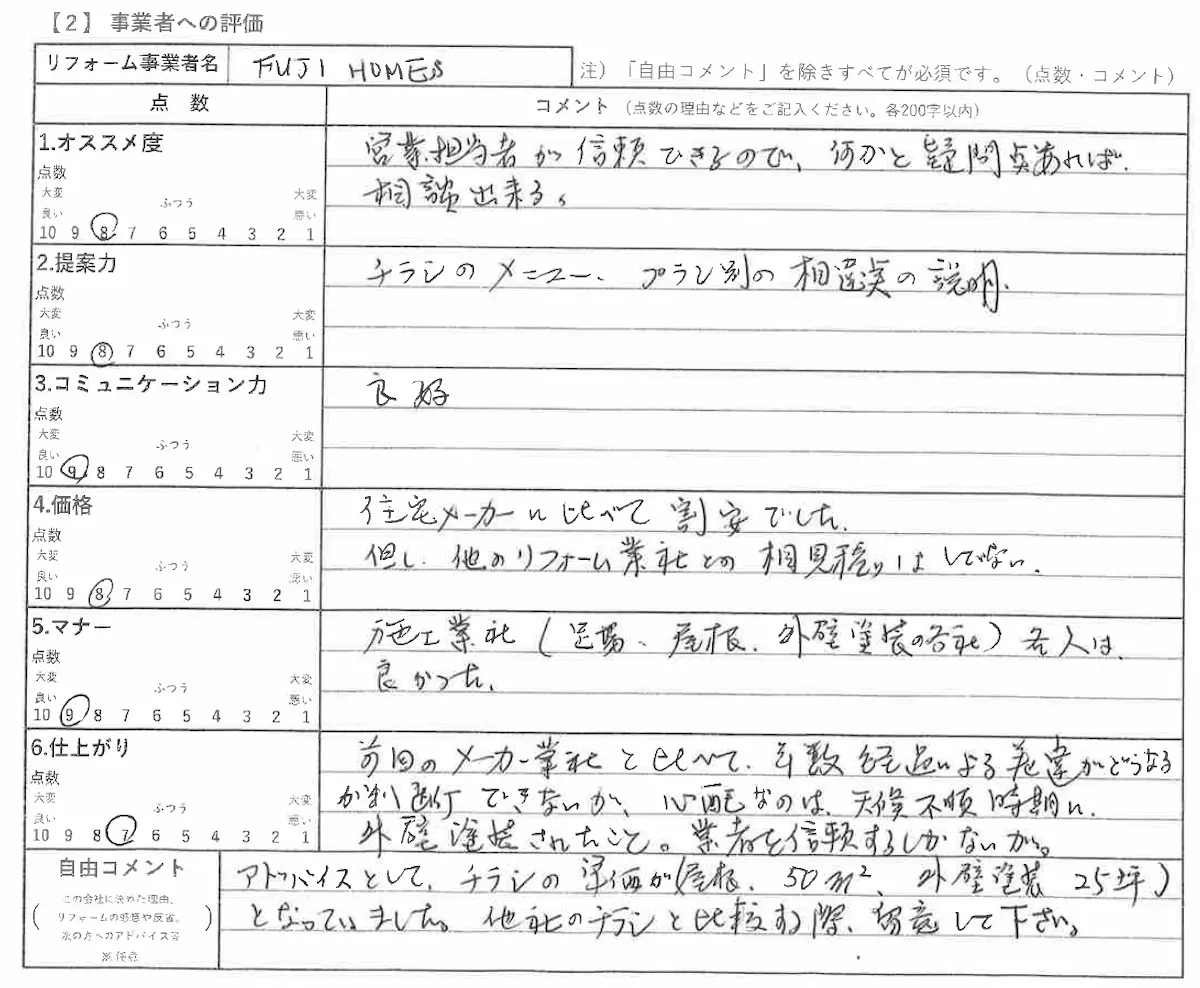 【2】 事業者への評価
リフォーム事業者名 FUJI HOMES
注）「自由コメント」を除きすべてが必須です。（点数・コメント）
点 数
コメント （点数の理由などをご記入ください。各200字以内）
1.オススメ度
点数
大変 ふつう 大変
良い 悪い
10 9 8 7 6 5 4 3 2 1
営業担当者が信頼できるので、何かと疑問点あれば、
相談出来る。
2.提案力
点数
大変 ふつう 大変
良い 悪い
10 9 8 7 6 5 4 3 2 1
チラシのメニュー、プラン別の相違点の説明.
3.コミュニケーション力
点数
大変 ふつう 大変
良い 悪い
10 9 8 7 6 5 4 3 2 1
良好
4.価格
点数
大変 ふつう 大変
良い 悪い
10 9 8 7 6 5 4 3 2 1
住宅メーカーに比べて割安でした.
但し、他のリフォーム業社との相見積りはしてない.
5.マナー
点数
大変 ふつう 大変
良い 悪い
10 9 8 7 6 5 4 3 2 1
施工業社（足場、屋根、外壁塗装の各社）各人は、
良かった.
6.仕上がり
点数
大変 ふつう 大変
良い 悪い
10 9 8 7 6 5 4 3 2 1
前回のメーカー業社と比べて、年数経過による差違がどうなる
か判断できないが、心配なのは、天候不順時期に、
外壁塗装されたこと。業者を信頼するしかないか。
自由コメント
（この会社に決めた理由、
リフォームの感想や反省、
次の方へのアドバイス等）
※任意
アドバイスとして、チラシの単価が（屋根、50m²、外壁塗装 25坪）
となっていました。他社のチラシと比較する際、留意して下さい。